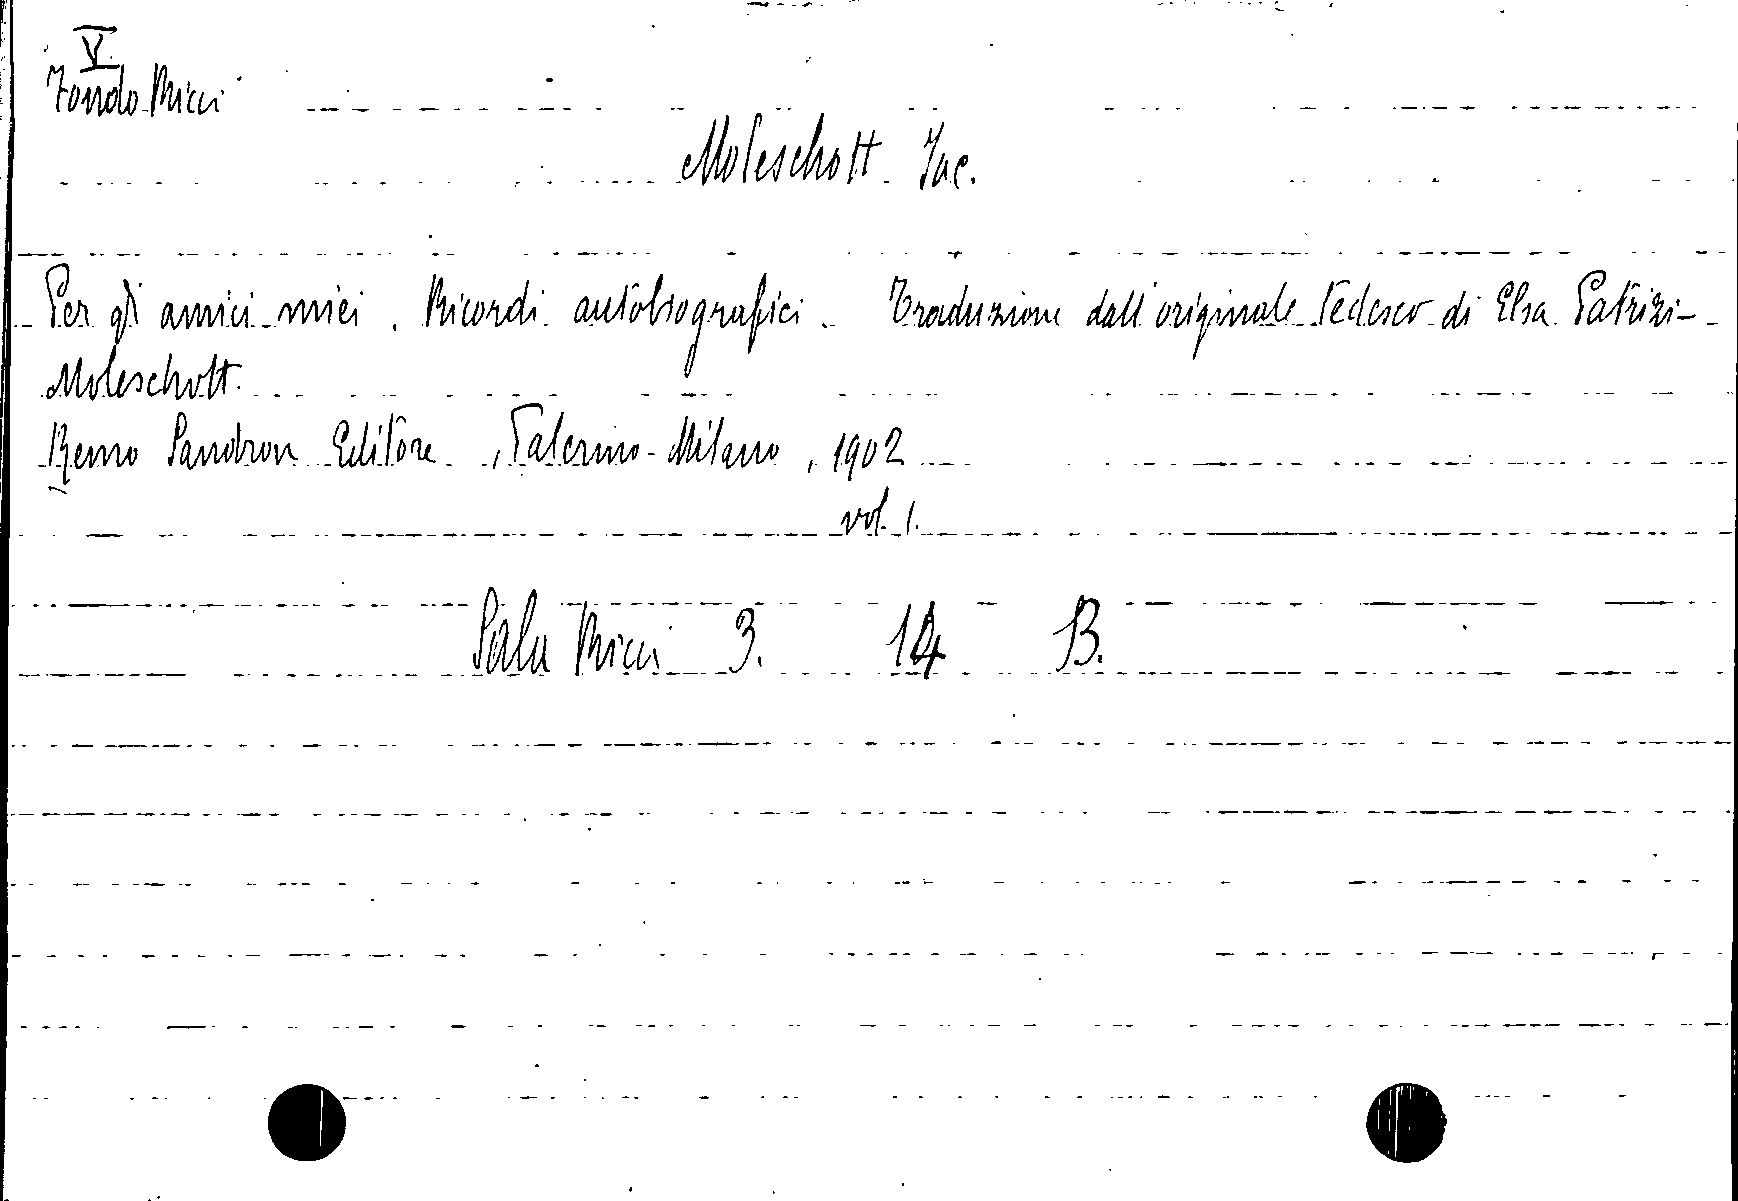 V.
Fondo Ricci
Moleschott Jac.
Per gli amici miei. Ricordi autobiografici. Traduzione dall'originale tedesco di Elsa Patrizi-
Moleschott.
Remo Sandron Editore, Palermo-Milano, 1902
vol. 1.
Sala Ricci 3. 14 B.